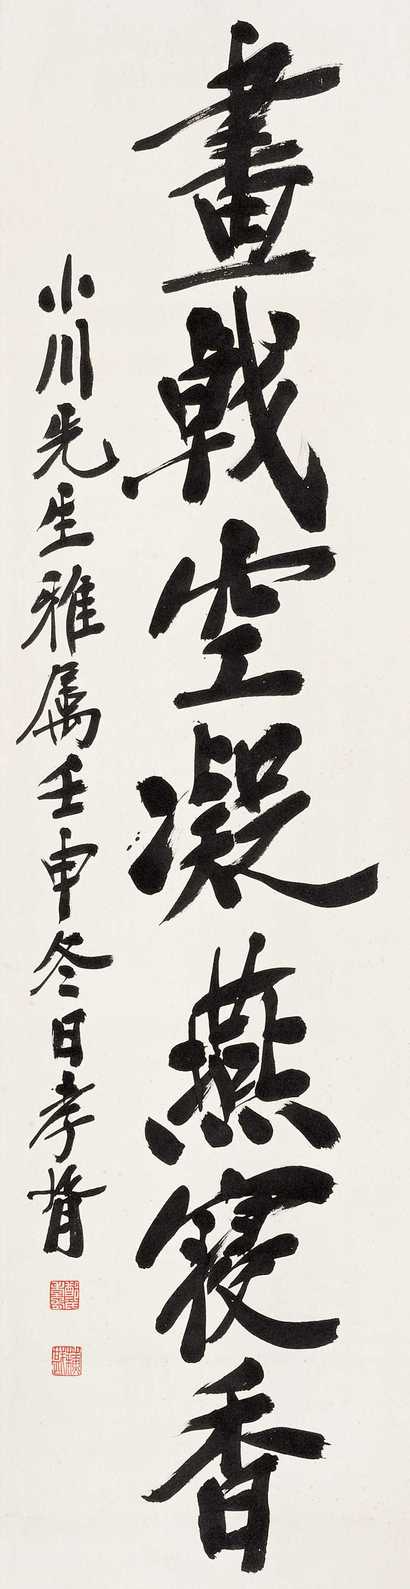 畫戟空凝燕寢香
小川先生雅属壬申冬日孝胥